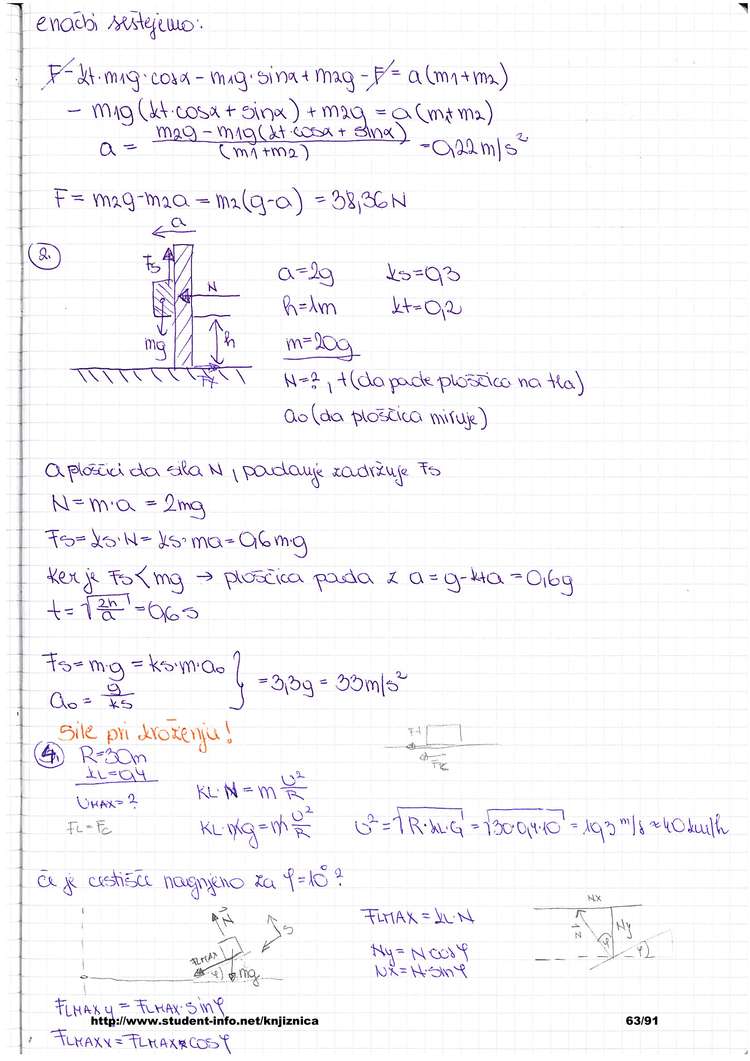 enačbi seštejemo:
F - kt·m1g·cosα - m1g·sinα + m2g - F = a(m1+m2)
- m1g(kt·cosα + sinα) + m2g = a(m1+m2)
a = m2g - m1g(kt·cosα + sinα) / (m1+m2) = 0,22 m/s²
F = m2g - m2a = m2(g-a) = 38,36 N
2.
a
Fs
N
mg
h
a = 2g ks = 0,3
h = 1m kt = 0,2
m = 20g
N = ?, t (da pade ploščica na tla)
a0 (da ploščica miruje)
a ploščici da sila N, padanje zadržuje Fs
N = m·a = 2mg
Fs = ks·N = ks·ma = 0,6m·g
Ker je Fs < mg → ploščica pada z a = g-kta = 0,6g
t = √2h/a = 0,6s
Fs = m·g = ks·m·a0
a0 = g/ks } = 3,3g = 33m/s²
Sile pri kroženju!
4. R = 30m
kL = 0,4
UMAX = ?
FL = Fc
kL·N = m U²/R
kL·mg = m U²/R
U² = √R·kL·G = √30·0,4·10 = 10,3 m/s ≈ 40 km/h
če je cestišče nagnjeno za φ = 10°?
N
S
FLMAX
φ
mg
FLMAX = kL·N
Ny = N cosφ
Nx = N·sinφ
Nx
N
Ny
φ
φ
FLMAX y = FLMAX·sinφ
http://www.student-info.net/knjiznica 63/91
FLMAX x = FLMAX·cosφ